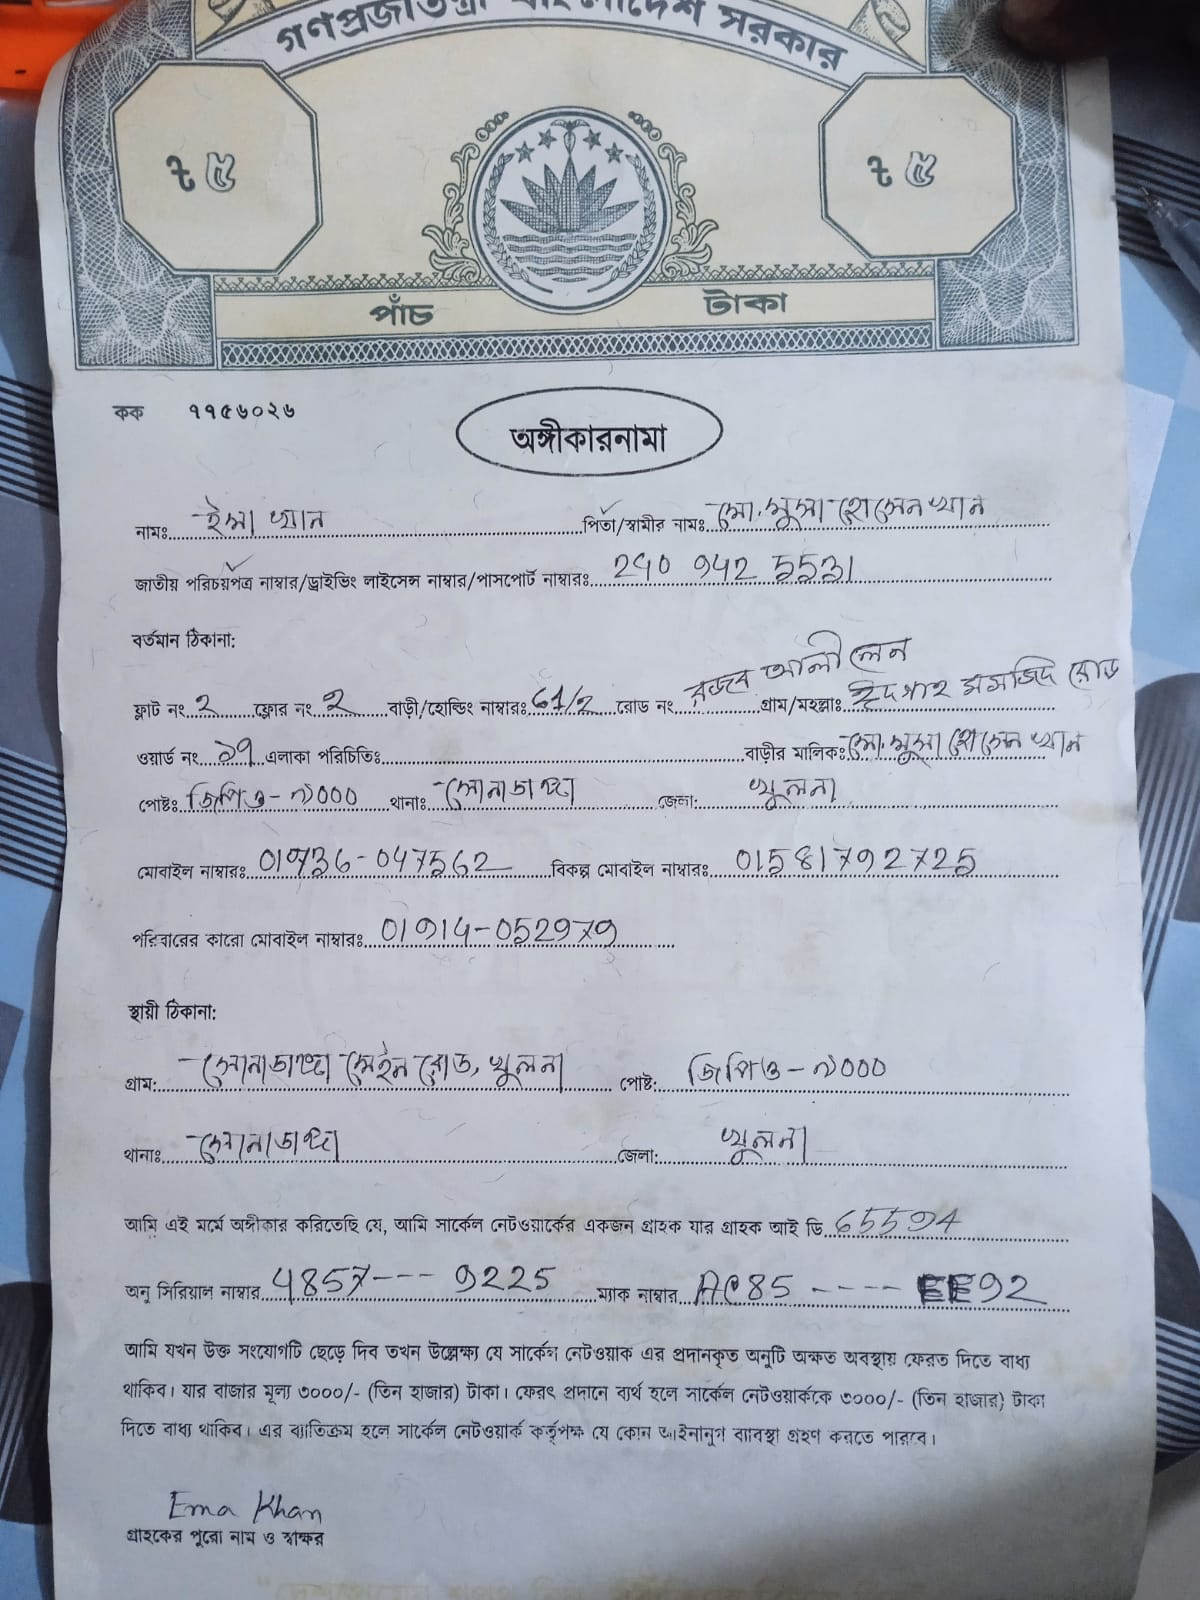 গণপ্রজাতন্ত্রী বাংলাদেশ সরকার
৳ ৫ ৳ ৫
পাঁচ টাকা
কক ৭৭৫৬০২৬
অঙ্গীকারনামা
নামঃ ইমা খান পিতা/স্বামীর নামঃ মো. মুসা হোসেন খান
জাতীয় পরিচয়পত্র নাম্বার/ড্রাইভিং লাইসেন্স নাম্বার/পাসপোর্ট নাম্বারঃ 290 942 5531
বর্তমান ঠিকানা:
ফ্লাট নং 2 ফ্লোর নং 2 বাড়ী/হোল্ডিং নাম্বারঃ 61/2 রোড নং রজব আলী লেন গ্রাম/মহল্লাঃ ঈদগাহ মসজিদ রোড
ওয়ার্ড নং ১৭ এলাকা পরিচিতিঃ বাড়ীর মালিকঃ মো. মুসা হোসেন খান
পোষ্টঃ জিপিও - ৯০০০ থানাঃ সোনাডাঙ্গা জেলা: খুলনা
মোবাইল নাম্বারঃ 01736-047562 বিকল্প মোবাইল নাম্বারঃ 01581792725
পরিবারের কারো মোবাইল নাম্বারঃ 01914-052979
স্থায়ী ঠিকানা:
গ্রাম: সোনাডাঙ্গা মেইন রোড, খুলনা পোষ্ট: জিপিও - ৯০০০
থানাঃ সোনাডাঙ্গা জেলা: খুলনা
আমি এই মর্মে অঙ্গীকার করিতেছি যে, আমি সার্কেল নেটওয়ার্কের একজন গ্রাহক যার গ্রাহক আই ডি 65594
অনু সিরিয়াল নাম্বার 4857--- 9225 ম্যাক নাম্বার AC85 ---- EE92
আমি যখন উক্ত সংযোগটি ছেড়ে দিব তখন উল্লেক্ষ্য যে সার্কেল নেটওয়াক এর প্রদানকৃত অনুটি অক্ষত অবস্থায় ফেরত দিতে বাধ্য
থাকিব। যার বাজার মূল্য ৩০০০/- (তিন হাজার) টাকা। ফেরৎ প্রদানে ব্যর্থ হলে সার্কেল নেটওয়ার্ককে ৩০০০/- (তিন হাজার) টাকা
দিতে বাধ্য থাকিব। এর ব্যাতিক্রম হলে সার্কেল নেটওয়ার্ক কর্তৃপক্ষ যে কোন আইনানুগ ব্যাবস্থা গ্রহণ করতে পারবে।
Ema Khan
গ্রাহকের পুরো নাম ও স্বাক্ষর